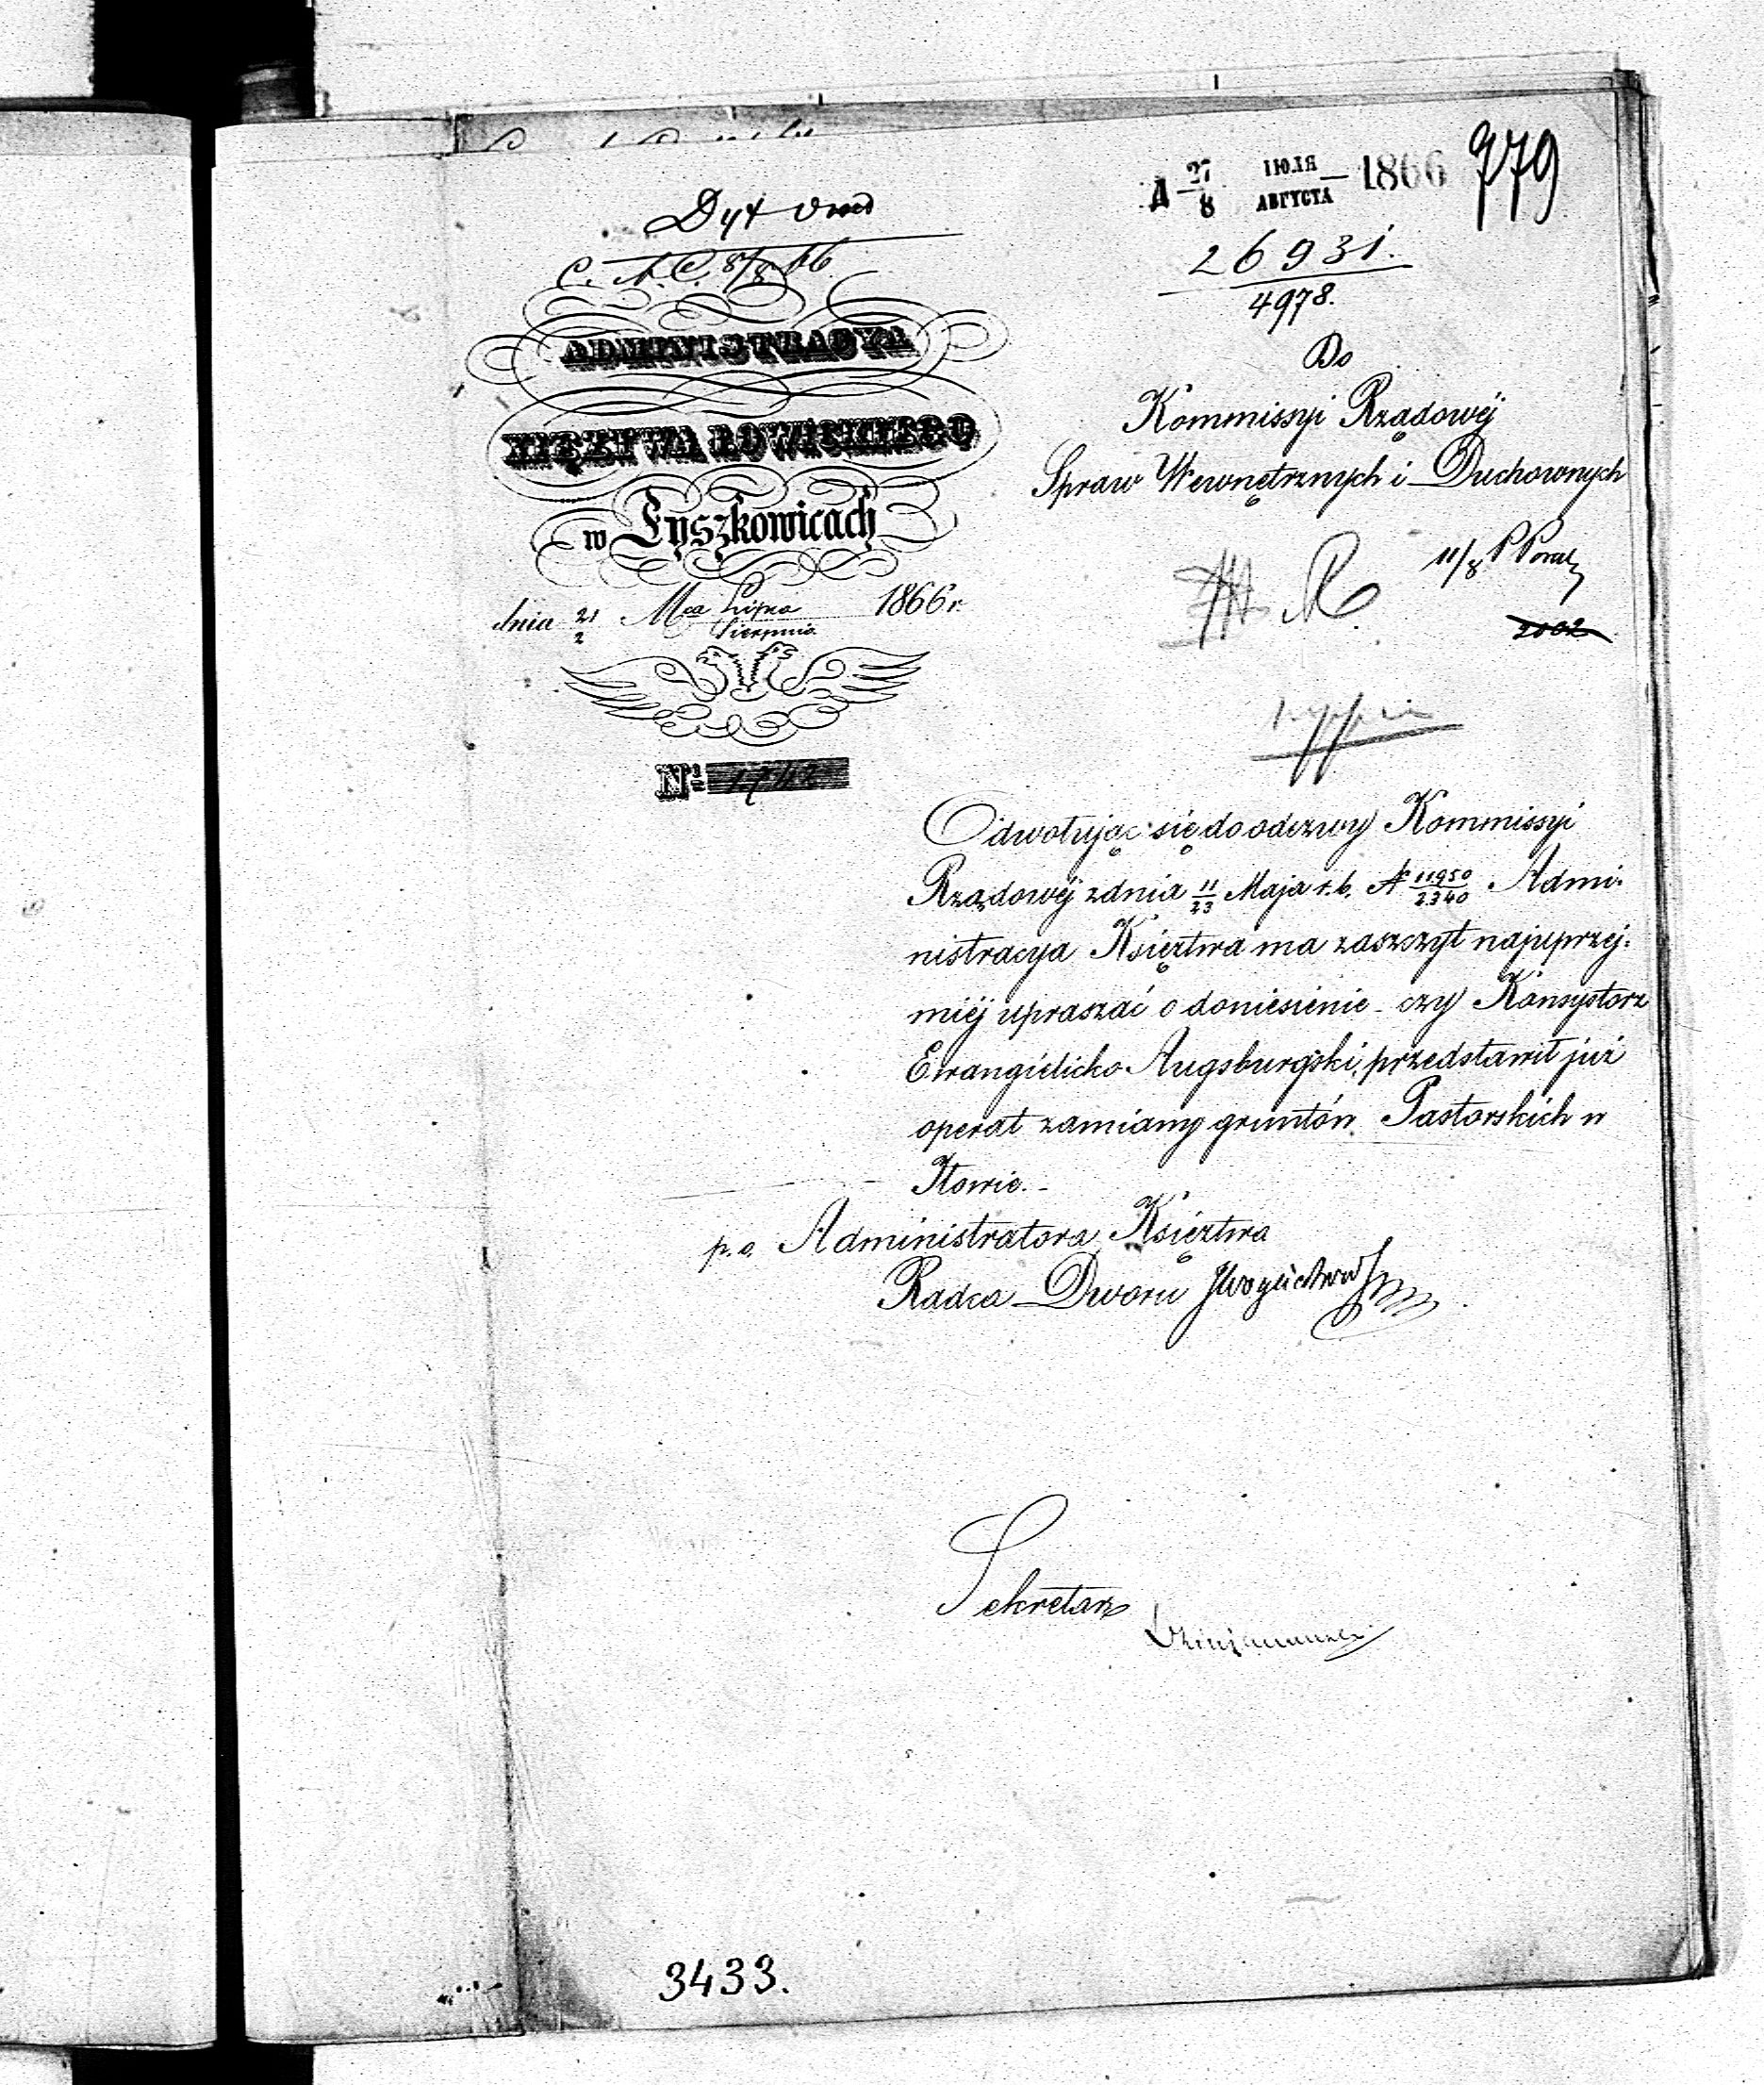 Д 27/8 ІЮЛЯ/АВГУСТА 1866
779
26931.
4978.
C. A. C. 8/8 66
ADMINISTRACYA
XIĘZTWA ŁOWICKIEGO
w Łyszkowicach
dnia 21/2 Mca Lipca/Sierpnia 1866 r.
Nr
Do
Kommissyi Rządowéj
Spraw Wewnętrznych i Duchownych
11/8
2002
Odwołując się do odezwy Kommissyi
Rządowéj z dnia 11/23 Maja r. b. N 11950/2340 Admi-
nistracya Księztwa ma zaszczyt najuprzej-
miéj upraszać o doniesienie - czy Konsystorz
Ewangielicko Augsburgski, przedstawił już
operat zamiany gruntów Pastorskich w
Iłowie. -
p. o. Administratora Księztwa
Radca Dworu
Sekretarz
3433.